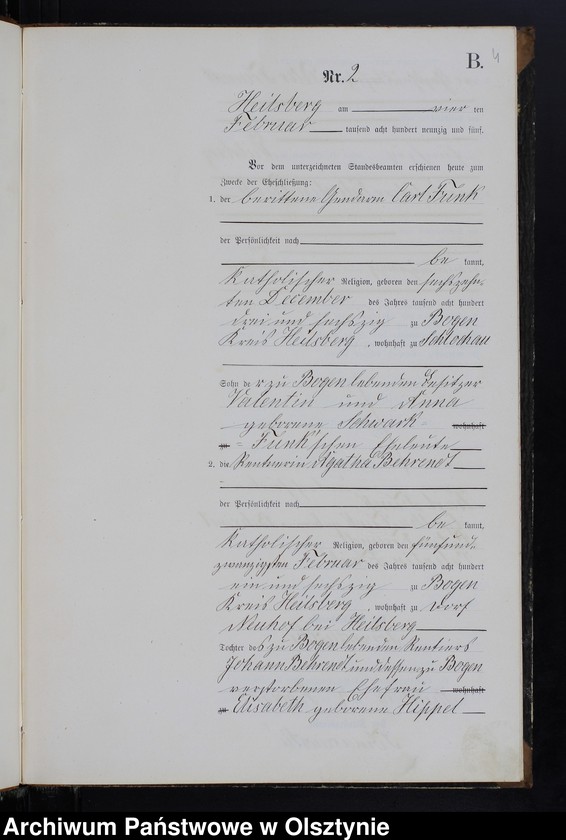 B.
4
Nr. 2
Heilsberg am vier ten
Februar tausend acht hundert neunzig und fünf.
Vor dem unterzeichneten Standesbeamten erschienen heute zum
Zwecke der Eheschließung:
1. der berittene Gendarm Carl Funk
der Persönlichkeit nach
be kannt,
katholischer Religion, geboren den sechszehn-
ten December des Jahres tausend acht hundert
drei und sechszig zu Bogen
Kreis Heilsberg, wohnhaft zu Schlochau
Sohn der zu Bogen lebenden Besitzer
Valentin und Anna
geborene Schwark- wohnhaft
zu - Funk'schen Eheleute
2. die Rentnerin Agatha Behrendt
der Persönlichkeit nach
be kannt,
katholischer Religion, geboren den fünfund-
zwanzigsten Februar des Jahres tausend acht hundert
ein und sechszig zu Bogen
Kreis Heilsberg, wohnhaft zu Dorf
Neuhof bei Heilsberg
Tochter des zu Bogen lebenden Rentiers
Johann Behrendt und dessen zu Bogen
verstorbenen Ehefrau wohnhaft
zu Elisabeth geborene Hippel
Archiwum Państwowe w Olsztynie